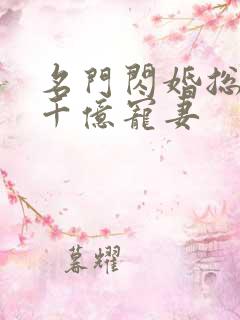 名門閃婚总
千億寵妻
暮耀